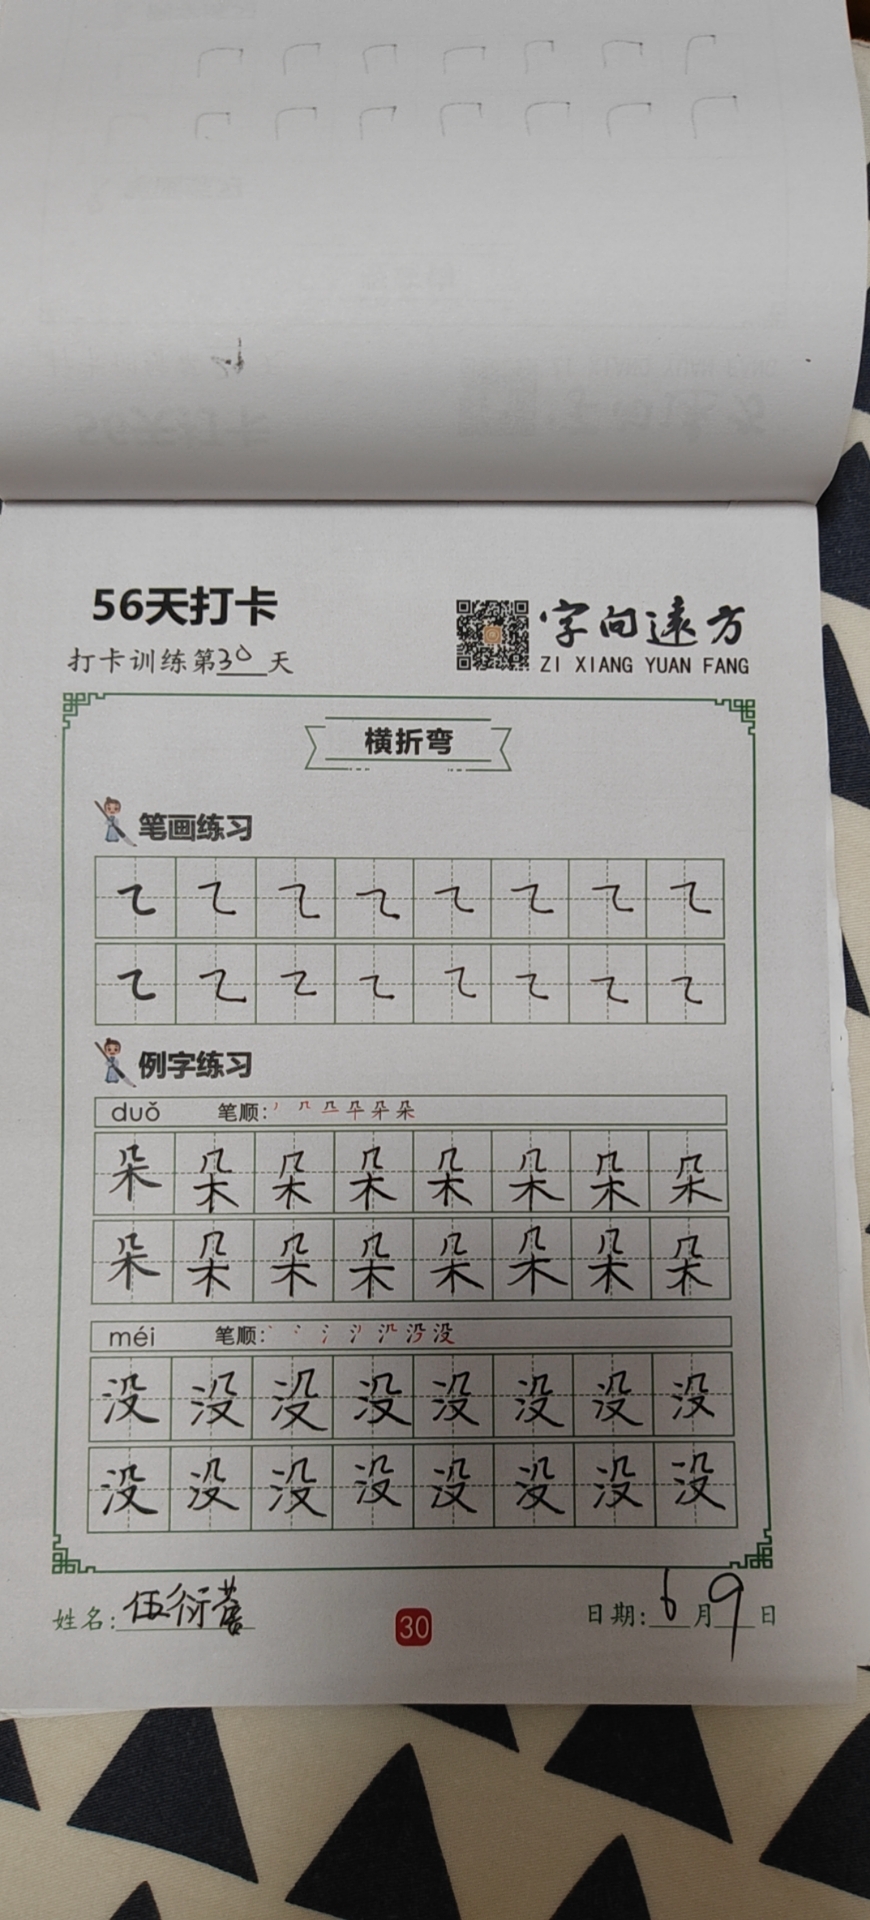 56天打卡
字向远方
打卡训练第30天
ZI XIANG YUAN FANG
横折弯
笔画练习
例字练习
duǒ 笔顺:
朵 朵 朵 朵 朵 朵 朵 朵
朵 朵 朵 朵 朵 朵 朵 朵
méi 笔顺:
没 没 没 没 没 没 没 没
没 没 没 没 没 没 没 没
姓名:伍衍
30
日期:6月9日